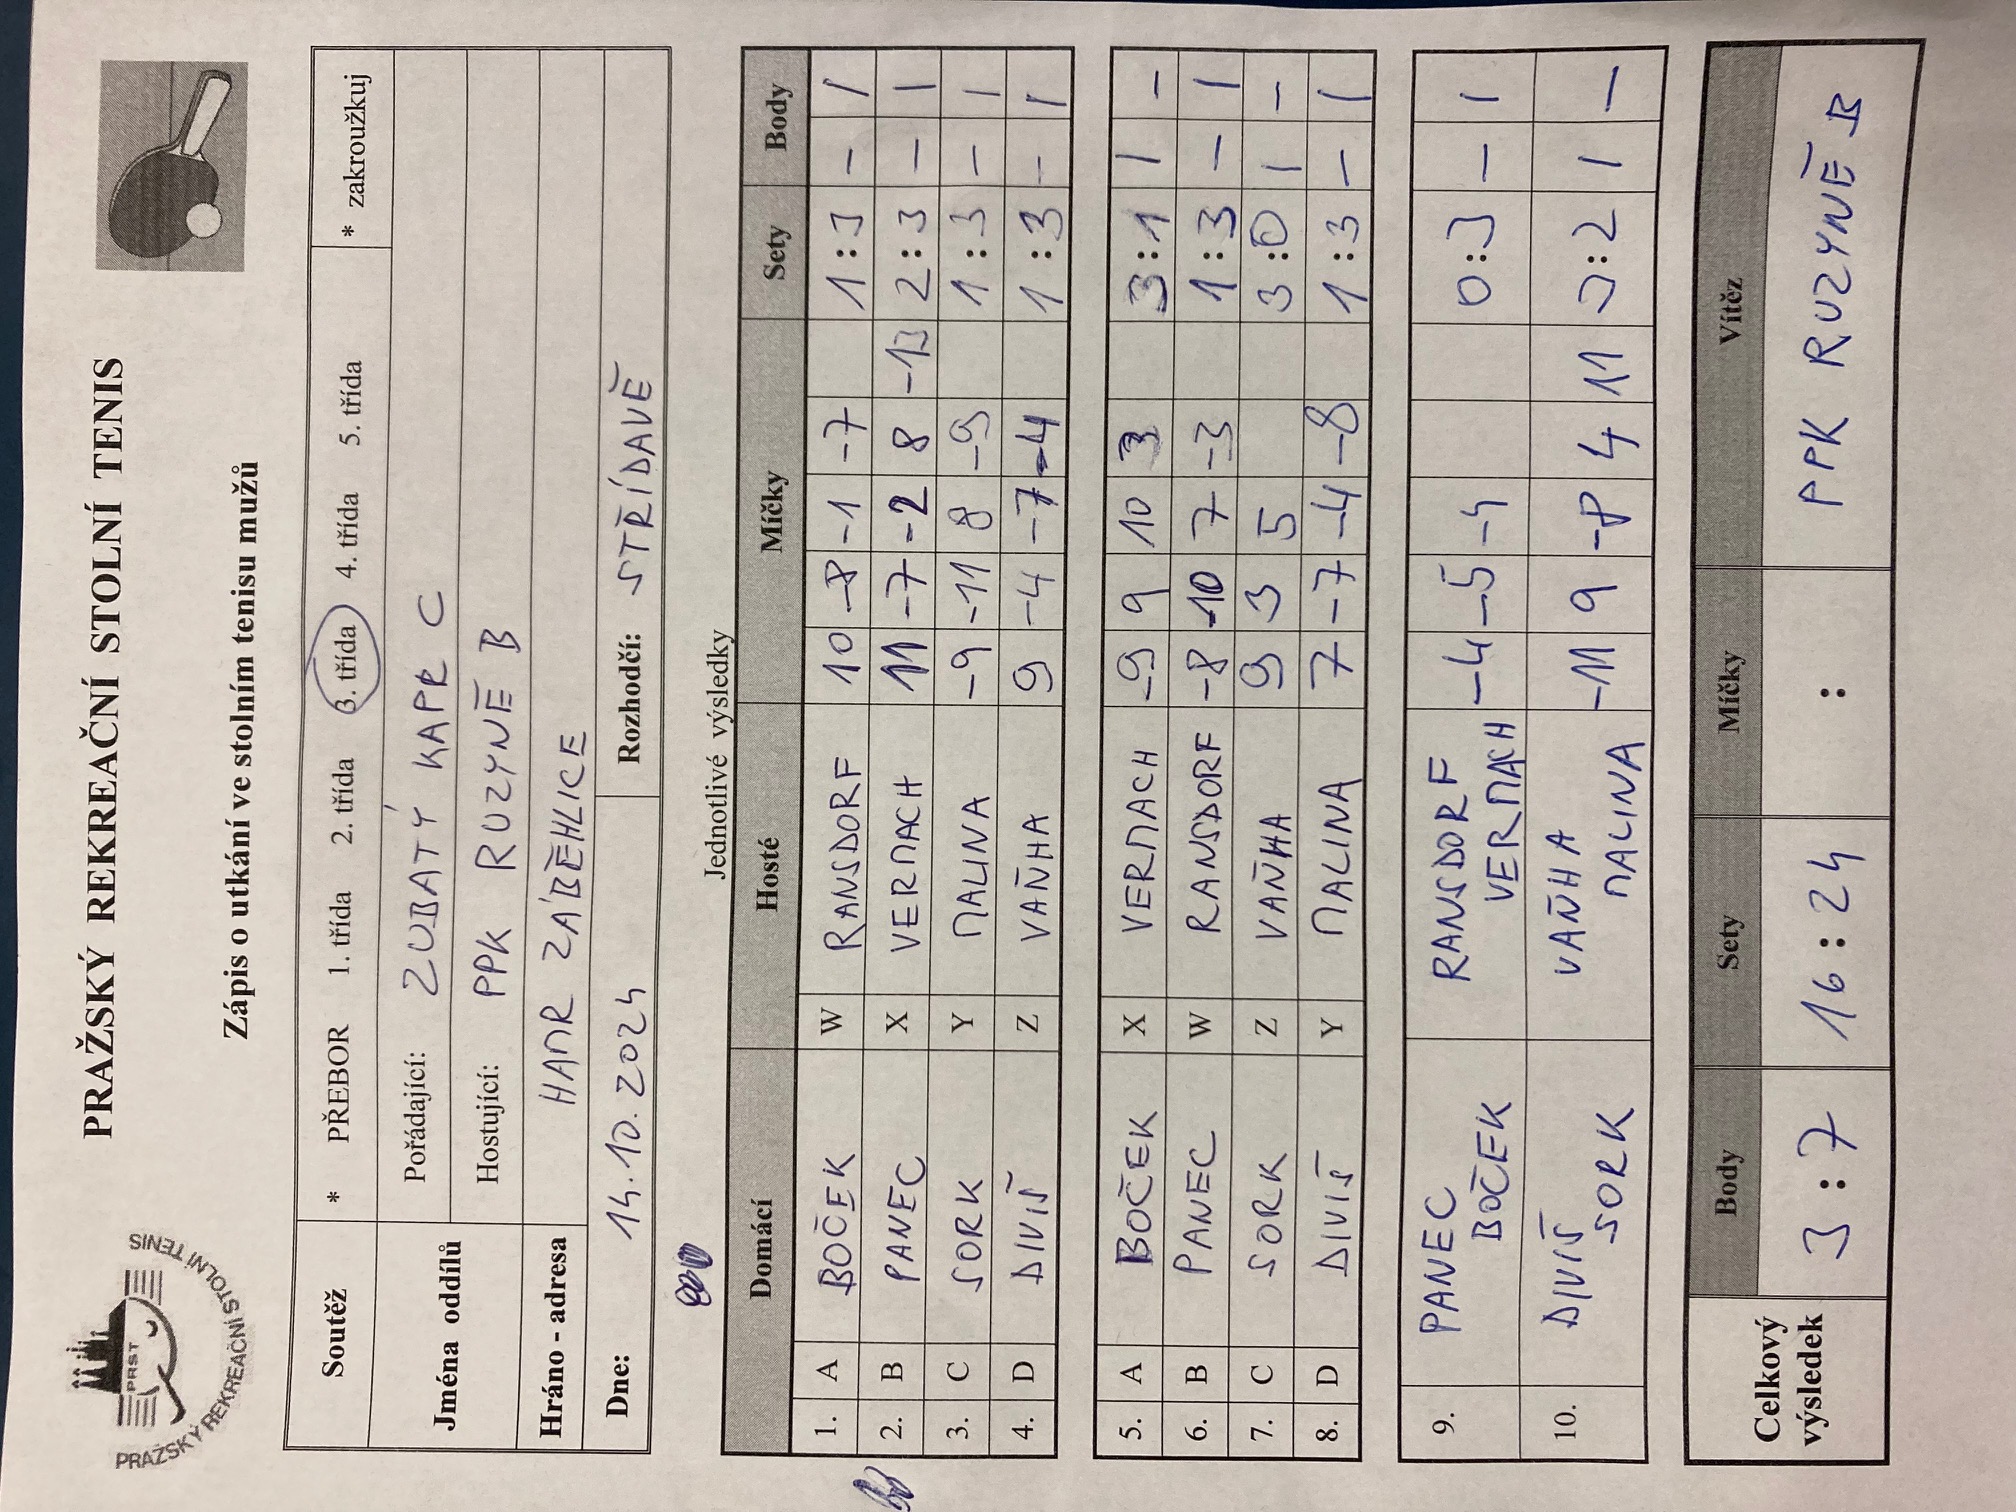 PRAŽSKÝ REKREAČNÍ STOLNÍ TENIS
PRST
PRAŽSKÝ REKREAČNÍ STOLNÍ TENIS
Zápis o utkání ve stolním tenisu mužů
Soutěž * PŘEBOR 1. třída 2. třída 3. třída 4. třída 5. třída * zakroužkuj
Jména oddílů Pořádající: ZUBATÝ KAPR C
Hostující: PPK RUZYNĚ B
Hráno - adresa HAMR ZÁBĚHLICE
Dne: 14.10.2024 Rozhodčí: STŘÍDAVĚ
Jednotlivé výsledky
Domácí Hosté Míčky Sety Body
1. A BOČEK W RANSDORF 10 -8 -1 -7 1:3 - 1
2. B PANEC X VERMACH 11 -7 -2 8 -13 2:3 - 1
3. C SORK Y MALINA -9 -11 8 -9 1:3 - 1
4. D DIVIŠ Z VAŇHA 9 -4 -7 -4 1:3 - 1
5. A BOČEK X VERMACH -9 9 10 3 3:1 1 -
6. B PANEC W RANSDORF -8 -10 7 -3 1:3 - 1
7. C SORK Z VAŇHA 9 3 5 3:0 1 -
8. D DIVIŠ Y MALINA 7 -7 -4 -8 1:3 - 1
9. PANEC RANSDORF -4 -5 -4 0:3 - 1
BOČEK VERMACH
10. DIVIŠ VAŇHA -11 9 -8 4 11 3:2 1 -
SORK MALINA
Celkový výsledek Body Sety Míčky Vítěz
3:7 16:24 : PPK RUZYNĚ B